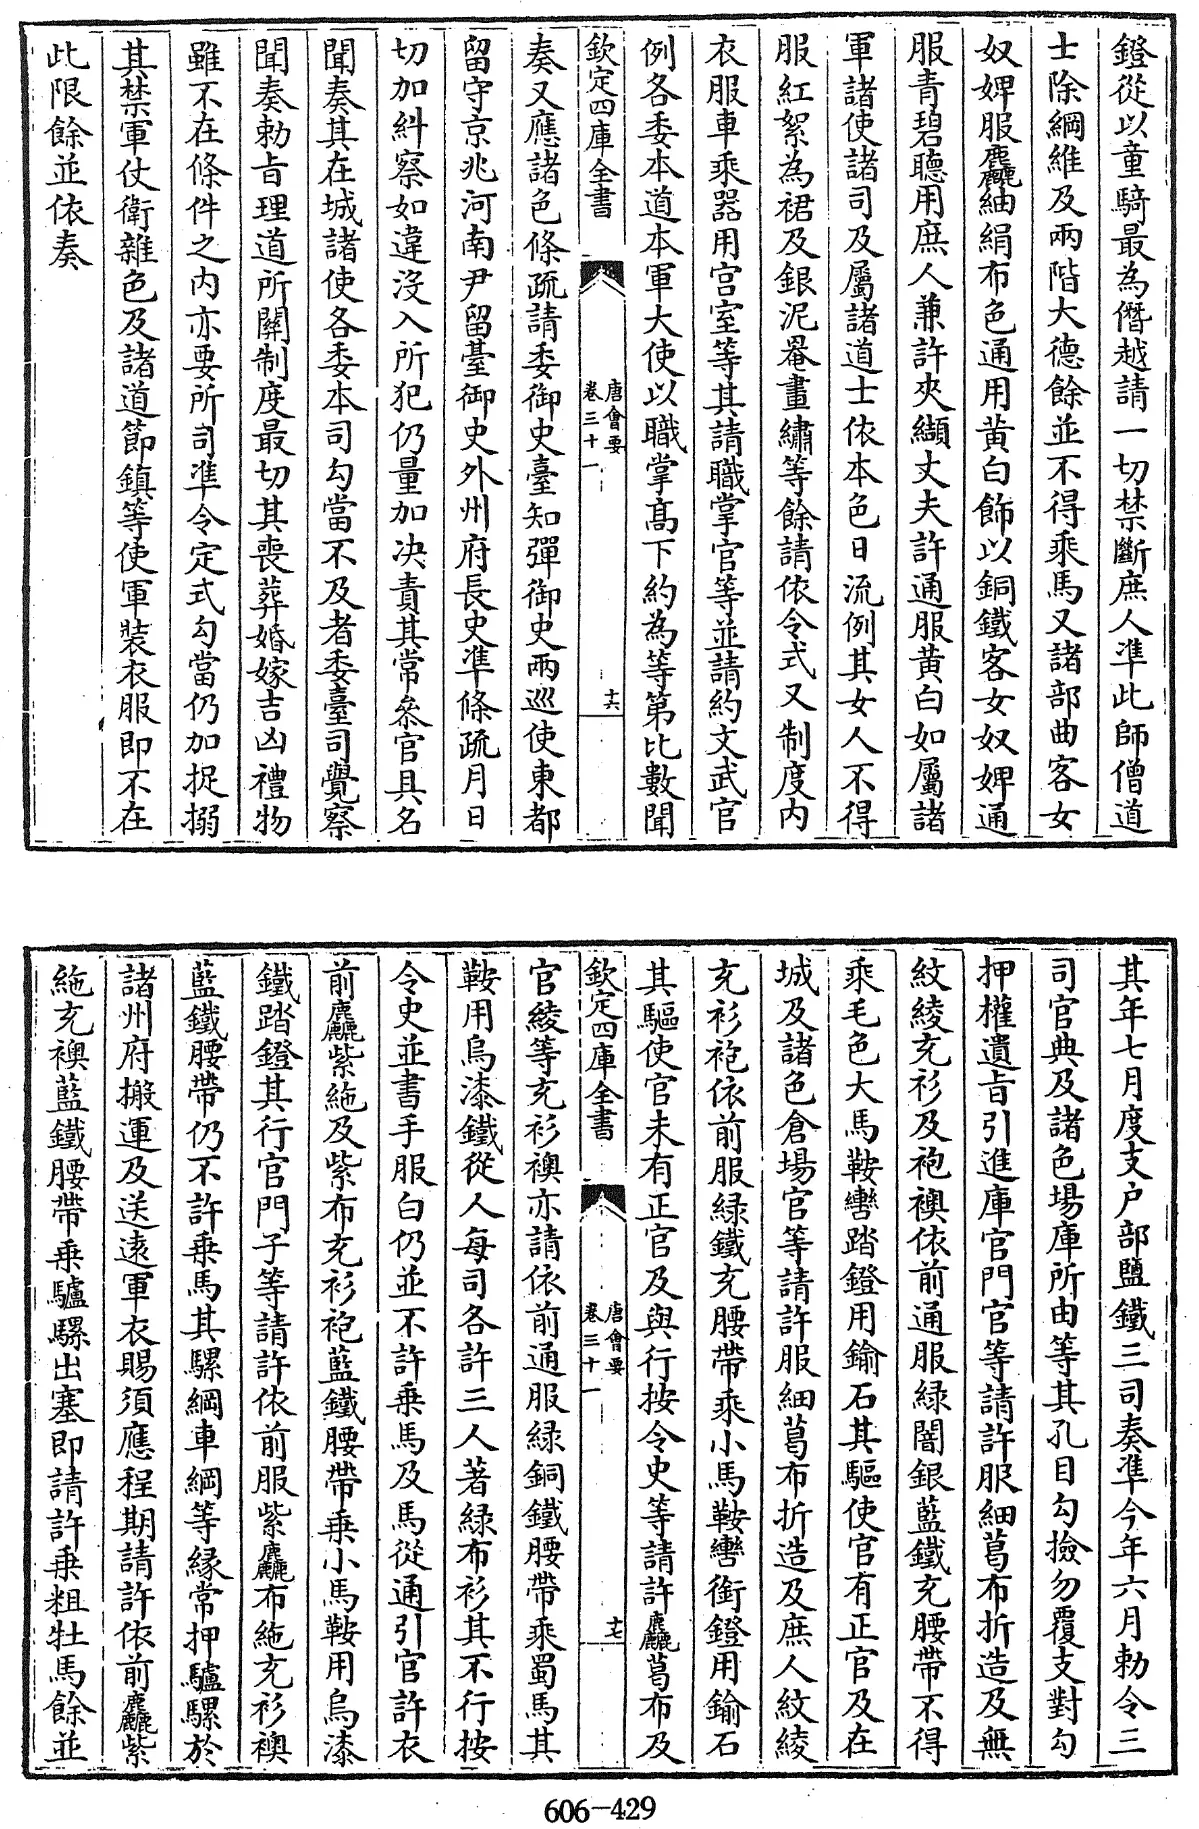 鐙從以童騎最為僭越請一切禁斷庶人準此師僧道
士除綱維及兩階大德餘並不得乘馬又諸部曲客女
奴婢服麤紬絹布色通用黄白飾以銅鐵客女奴婢通
服青碧聽用庶人兼許夾纈丈夫許通服黄白如屬諸
軍諸使諸司及屬諸道士依本色目流例其女人不得
服紅絮為裙及銀泥罨畫繡等餘請依令式又制度内
衣服車乘器用宫室等其請職掌官等並請約文武官
例各委本道本軍大使以職掌髙下約為等第比數聞
欽定四庫全書
唐會要
卷三十一
十六
奏又應諸色條疏請委御史臺知彈御史兩巡使東都
留守京兆河南尹留臺御史外州府長史準條疏月日
切加糾察如違没入所犯仍量加决責其常叅官具名
聞奏其在城諸使各委本司勾當不及者委臺司覺察
聞奏勅旨理道所關制度最切其喪葬婚嫁吉凶禮物
雖不在條件之内亦要所司準令定式勾當仍加捉搦
其禁軍仗衛雜色及諸道節鎮等使軍裝衣服即不在
此限餘並依奏
其年七月度支户部鹽鐵三司奏準今年六月勅令三
司官典及諸色場庫所由等其孔目勾撿勿覆支對勾
押權遺旨引進庫官門官等請許服細葛布折造及無
紋綾充衫及袍襖依前通服緑闇銀藍鐵充腰帶不得
乘毛色大馬鞍轡踏鐙用鍮石其驅使官有正官及在
城及諸色倉場官等請許服細葛布折造及庶人紋綾
充衫袍依前服緑鐵充腰帶乘小馬鞍轡銜鐙用鍮石
其驅使官未有正官及與行按令史等請許麤葛布及
欽定四庫全書
唐會要
卷三十一
十七
官綾等充衫襖亦請依前通服緑銅鐵腰帶乘蜀馬其
鞍用烏漆鐵從人每司各許三人著緑布衫其不行按
令史並書手服白仍並不許乗馬及馬從通引官許衣
前麤紫絁及紫布充衫袍藍鐵腰帶乗小馬鞍用烏漆
鐵踏鐙其行官門子等請許依前服紫麤布絁充衫襖
藍鐵腰帶仍不許乗馬其騾綱車綱等緣常押驢騾於
諸州府搬運及送遠軍衣賜須應程期請許依前麤紫
絁充襖藍鐵腰帶乗驢騾出塞即請許乗粗牡馬餘並
606-429